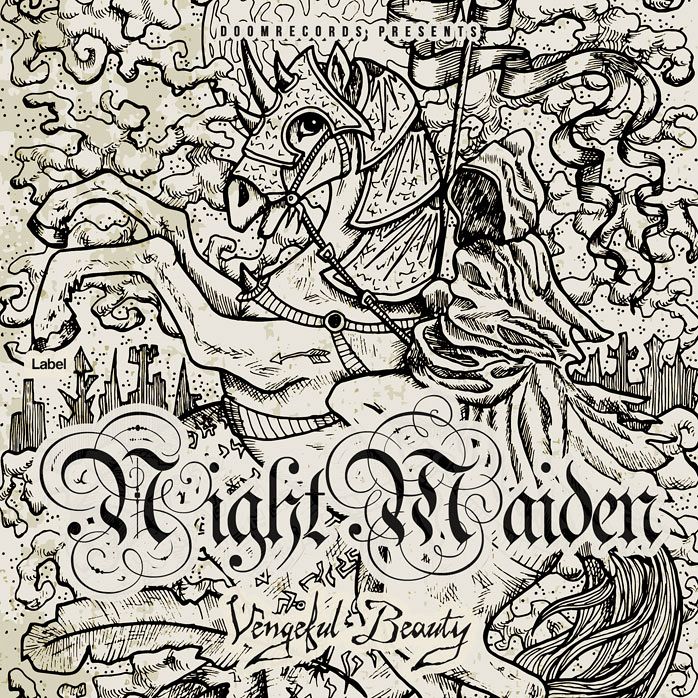 DOOMRECORDS PRESENTS
Label
Night Maiden
Vengeful Beauty